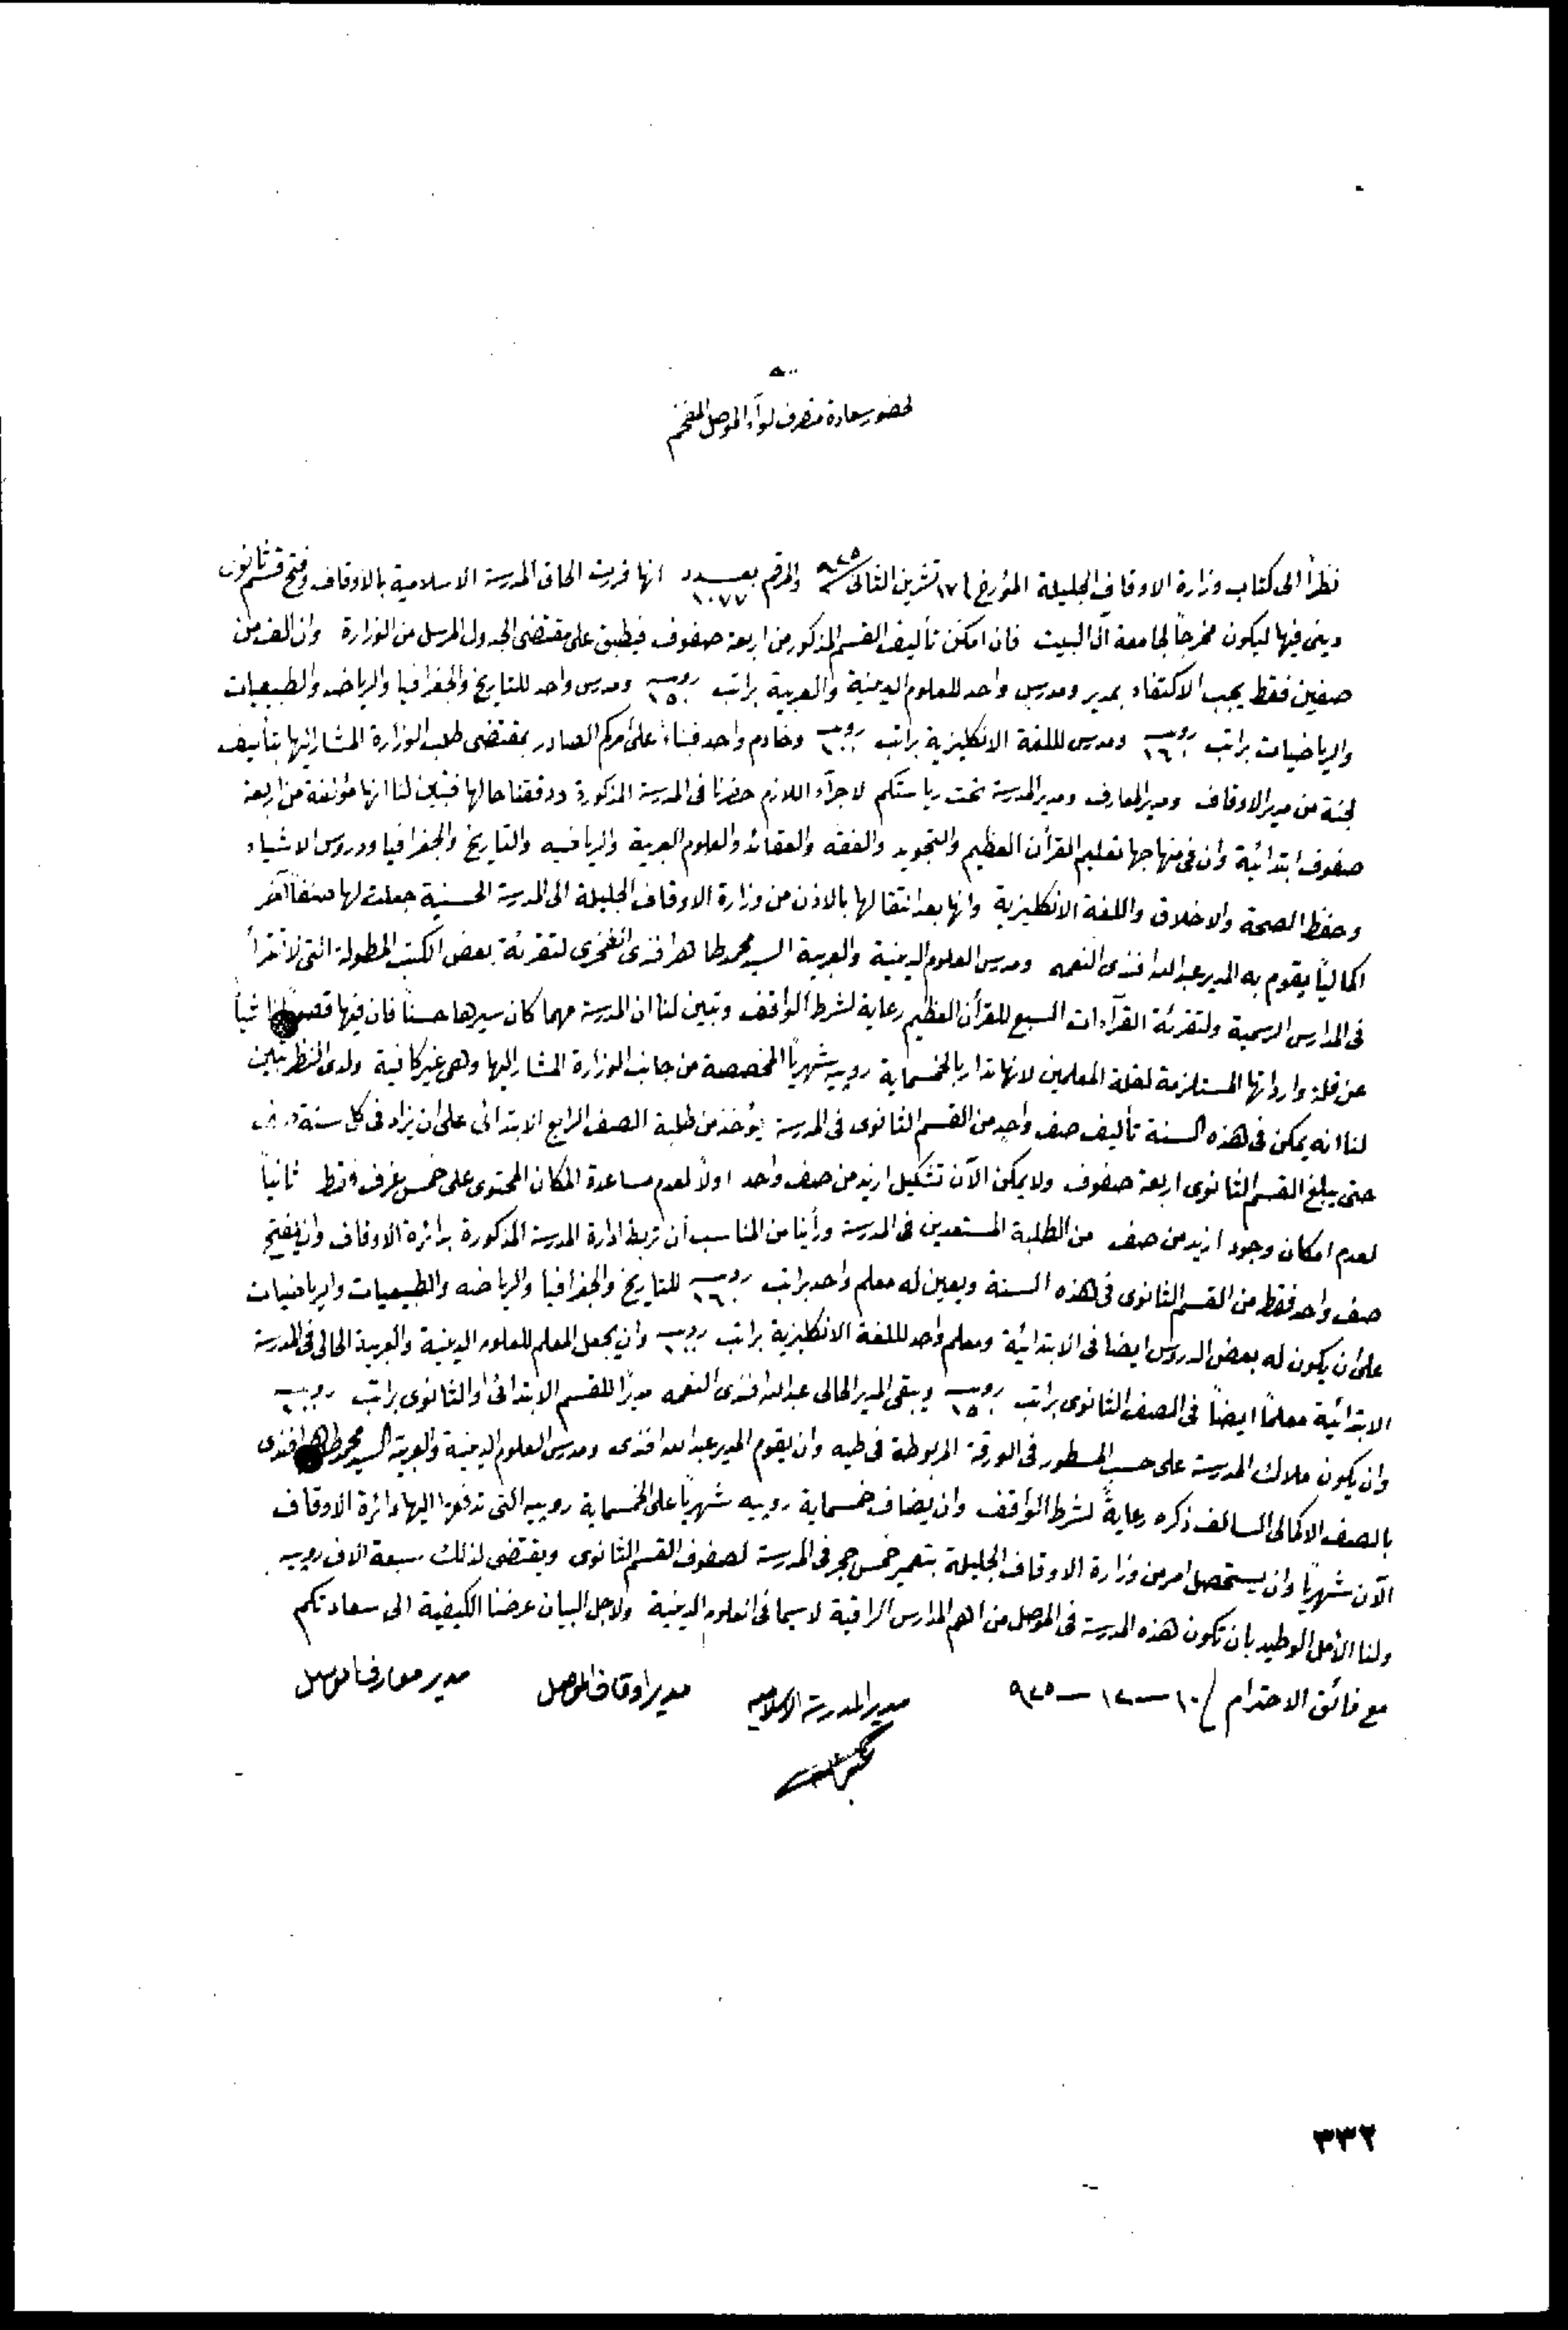 لحضور سعادة متصرف لوآء الموصل المفخم
نظراً الى كتاب وزارة الاوقاف الجليلة المؤرخ ١٧ تشرين الثانى ٩٢٥ والمرقم بعدد ١٠٧٧ انها قررت الحاق المدرسة الاسلامية بالاوقاف وفتح قسم ثانوى
دينى فيها ليكون مخرجاً لجامعة آل البيت فان امكن تأليف القسم المذكور من اربعة صفوف فيطبق على مقتضى الجدول المرسل من الوزارة وان الف من
صفين فقط يجب الاكتفاء بمدير ومدرس واحد للعلوم الدينية والعربية براتب روبيه ١٥٠ ومدرس واحد للتاريخ والجغرافيا والرياضه والطبيعيات
والرياضيات براتب روبيه ١٦٠ ومدرس للغة الانكليزية براتب روبيه ١٠٠ وخادم واحد فبناءً على امركم الصادر بمقتضى طلب الوزارة المشار اليها بتأليف
لجنة من مدير الاوقاف ومدير المعارف ومدير المدرسة تحت رياستكم لاجرآء اللازم حضرنا فى المدرسة المذكورة ودققنا حالها فتبين لنا انها مؤلفة من اربعة
صفوف ابتدائية وان فى منهاجها تعليم القرأن العظيم والتجويد والفقه والعقائد والعلوم العربية والرياضيه والتاريخ والجغرافيا ودروس الاشياء
وحفظ الصحة والاخلاق واللغة الانكليزية وانها بعد انتقالها بالاذن من وزارة الاوقاف الجليلة الى المدرسة الحسنية جعلت لها صفاً آخر
اكمالياً يقوم به المدير عبدالله افندى النعمه ومدرس العلوم الدينية والعربية السيد محمد طاهر افندى الفخرى لتقرئة بعض الكتب المطولة التى لا تقرأ
فى المدارس الرسمية ولتقرئة القرآءات السبع للقرأن العظيم رعاية لشرط الواقف وتبين لنا ان المدرسة مهما كان سيرها حسناً فان فيها نقصاً ناشياً
عن قلة وارداتها المستلزمة لقلة المعلمين لانها تدار بالخمسماية روبيه شهرياً المخصصة من جانب الوزارة المشار اليها وهى غير كافية ولدى النظر تبين
لنا انه يمكن فى هذه السنة تأليف صف واحد من القسم الثانوى فى المدرسة يؤخذ من طلبة الصف الرابع الابتدائى على ان يزاد فى كل سنة صف
حتى يبلغ القسم الثانوى اربعة صفوف ولا يمكن الآن تشكيل ازيد من صف واحد اولاً لعدم مساعدة المكان المحتوى على خمس غرف فقط ثانياً
لعدم امكان وجود ازيد من صف من الطلبة المستعدين فى المدرسة ورأينا من المناسب أن تربط ادارة المدرسة المذكورة بدائرة الاوقاف وان يفتح
صف واحد فقط من القسم الثانوى فى هذه السنة ويعين له معلم واحد براتب روبيه ١٦٠ للتاريخ والجغرافيا والرياضه والطبيعيات والرياضيات
على ان يكون له بعض الدروس ايضا فى الابتدائية ومعلم واحد للغة الانكليزية براتب روبيه ١٠٠ وان يجعل المعلم للعلوم الدينية والعربية الحالى فى المدرسة
الابتدائية معلماً ايضاً فى الصف الثانوى براتب روبيه ١٥٠ ويبقى المدير الحالى عبدالله افندى النعمه مديراً للقسم الابتدائى والثانوى براتب روبيه
وان يكون ملاك المدرسة على حسب المسطور فى الورقة المربوطة فى طيه وان يقوم المدير عبدالله افندى ومدرس العلوم الدينية والعربية السيد محمد طاهر افندى
بالصف الاكمالى السالف ذكره رعايةً لشرط الواقف وان يضاف خمسماية روبيه شهرياً على الخمسماية روبيه التى تدفعها اليها دائرة الاوقاف
الآن شهرياً وان يستحصل امر من وزارة الاوقاف الجليلة بتعمير خمس حجر فى المدرسة لصفوف القسم الثانوى ويقتضى لذلك سبعة الاف روبيه
ولنا الأمل الوطيد بان تكون هذه المدرسة فى الموصل من اهم المدارس الراقية لاسيما فى العلوم الدينية ولاجل البيان عرضنا الكيفية الى سعادتكم
مع فائق الاحترام / ١٠ - ١٢ - ٩٢٥ مدير المدرسة الاسلاميه مدير اوقاف الموصل مدير معارف الموصل
٣٣٢